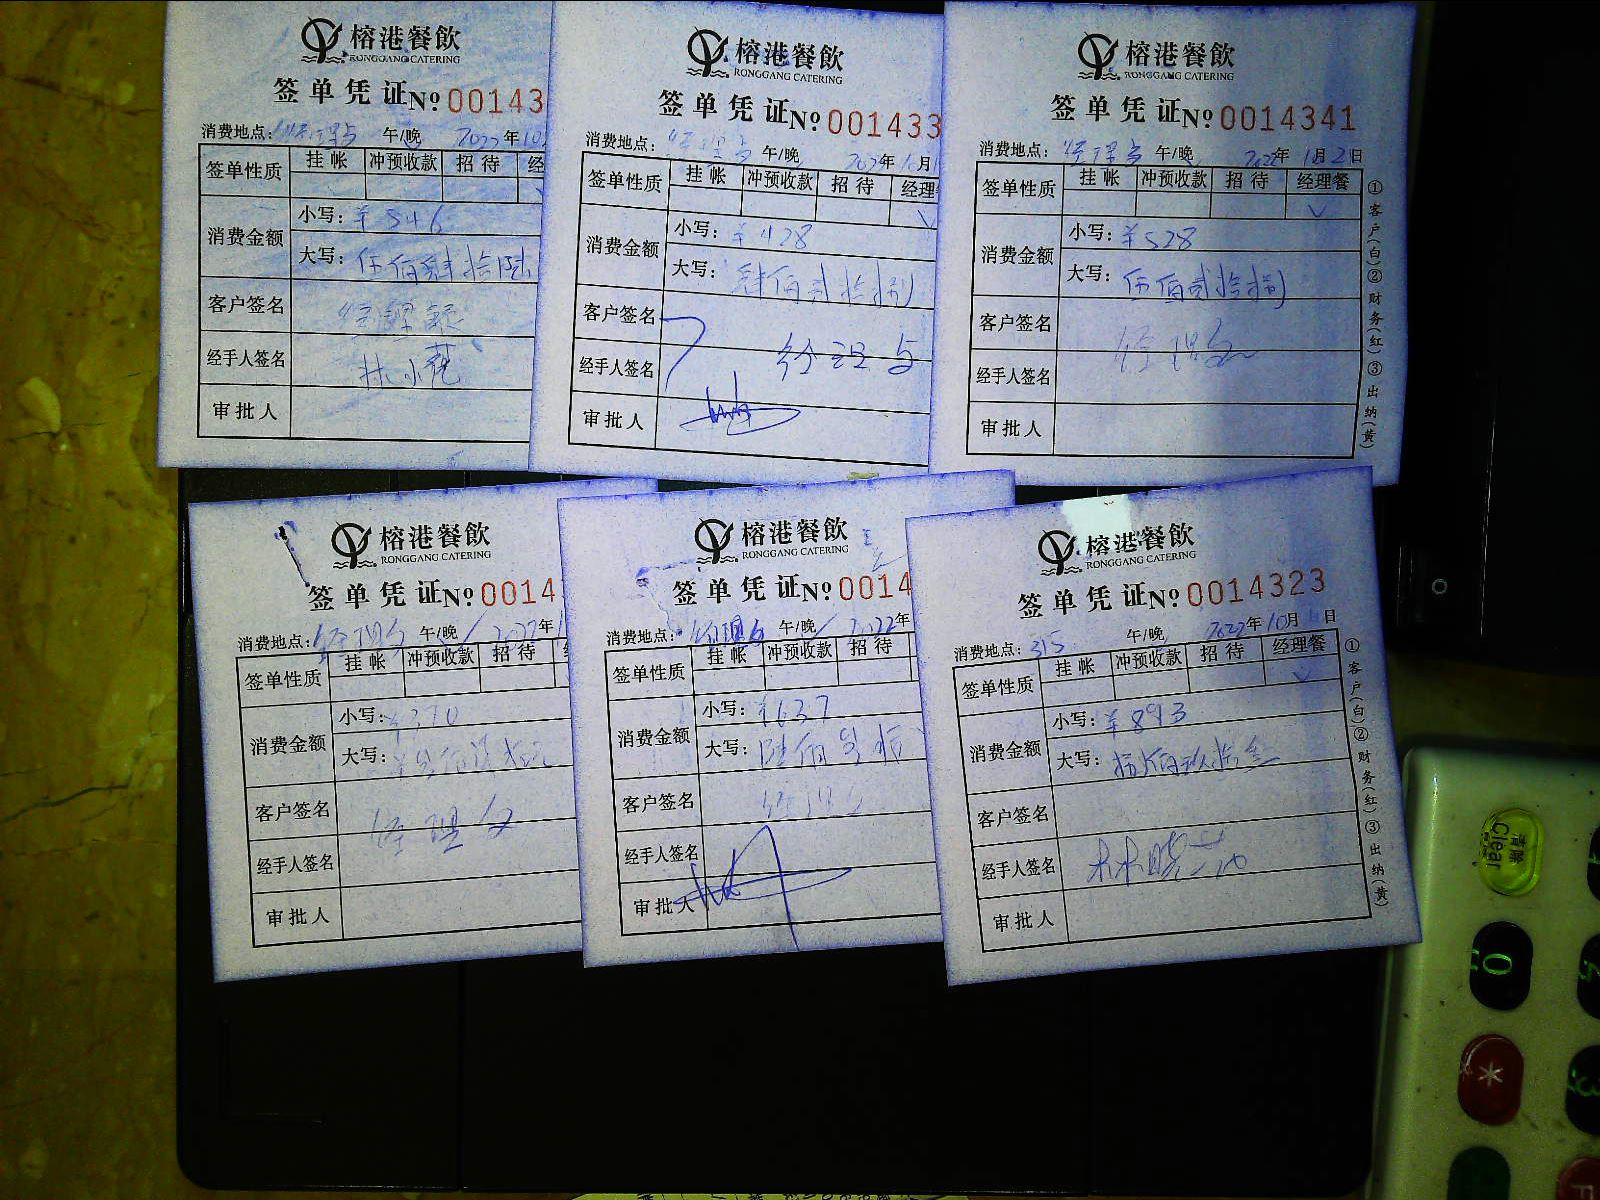 榕港餐飲
RONGGANG CATERING
签单凭证 № 00143
消费地点: 午/晚 2022年10
签单性质 挂帐 冲预收款 招待 经
消费金额 小写: ¥546
大写: 伍佰肆拾陆
客户签名
经手人签名 林小花
审批人
榕港餐飲
RONGGANG CATERING
签单凭证 № 001433
消费地点: 经理台 午/晚 2022年10月
签单性质 挂帐 冲预收款 招待 经理餐
消费金额 小写: ¥428
大写: 肆佰贰拾捌
客户签名
经手人签名 经理台
审批人
榕港餐飲
RONGGANG CATERING
签单凭证 № 0014341
消费地点: 经理台 午/晚 2022年10月2日
签单性质 挂帐 冲预收款 招待 经理餐
消费金额 小写: ¥528
大写: 伍佰贰拾捌
客户签名 经理台
经手人签名
审批人
①客户(白)②财务(红)③出纳(黄)
榕港餐飲
RONGGANG CATERING
签单凭证 № 0014
消费地点: 经理台 午/晚 2022年1
签单性质 挂帐 冲预收款 招待
消费金额 小写: ¥370
大写: 叁佰柒拾元
客户签名 经理台
经手人签名
审批人
榕港餐飲
RONGGANG CATERING
签单凭证 № 0014
消费地点: 经理台 午/晚 2022年
签单性质 挂帐 冲预收款 招待
消费金额 小写: ¥637
大写: 陆佰叁拾
客户签名 经理台
经手人签名
审批人
榕港餐飲
RONGGANG CATERING
签单凭证 № 0014323
消费地点: 315 午/晚 2022年10月1日
签单性质 挂帐 冲预收款 招待 经理餐
消费金额 小写: ¥893
大写: 捌佰玖拾叁
客户签名
经手人签名 林晓花
审批人
①客户(白)②财务(红)③出纳(黄)
清除
Clear
0
*